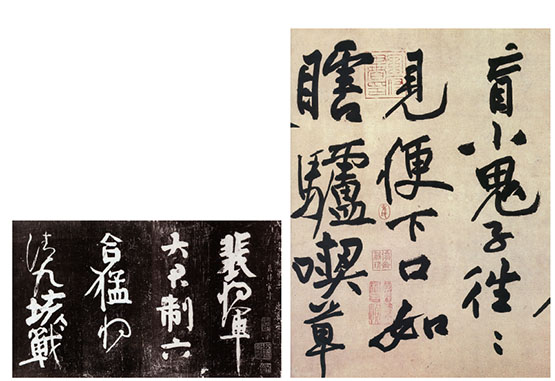 盲小鬼子往〻
見便下口如
瞎驢喫草
裴将軍
大君制六
合猛将
清九垓戰